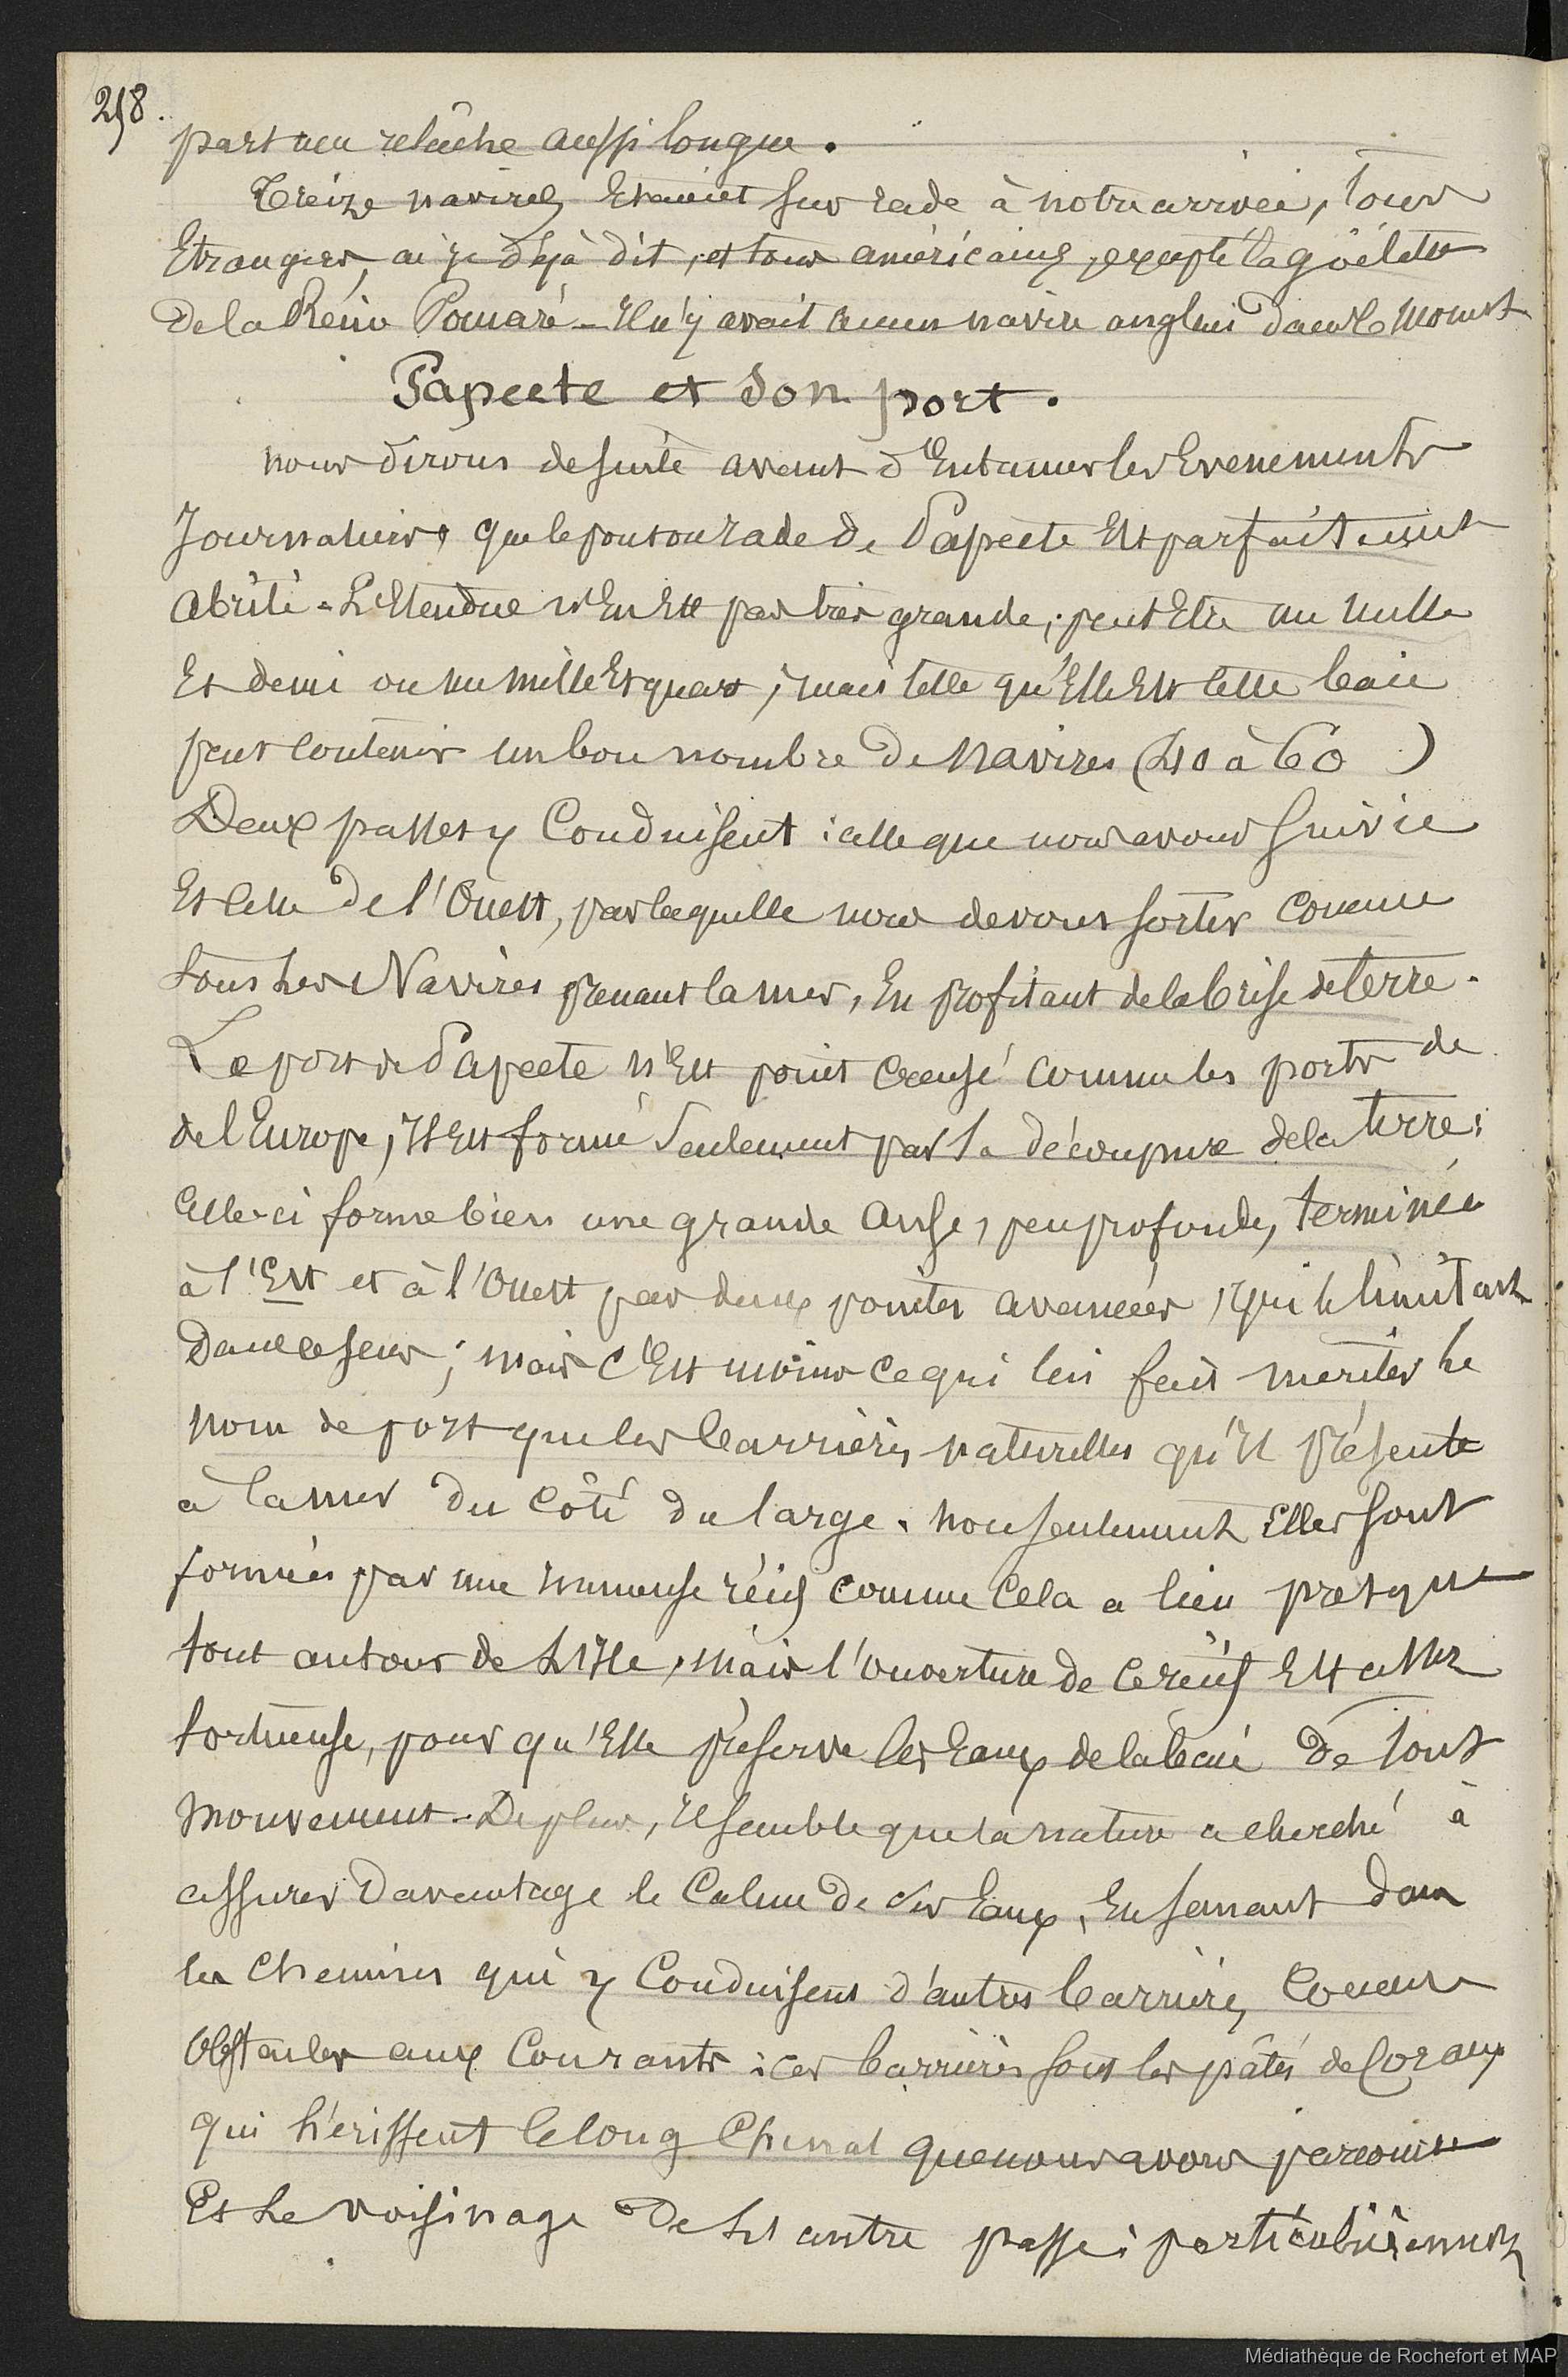 258.
part une relâche aussi longue.
Treize navires Etaient sur rade à notre arrivée, tous
Etrangers, ai je déjà dit, et tous américains, excepté la goëlette
de la Reine Pomaré - Il n'y avait aucun navire anglais dans le moment
Papeete et son port.
nous dirons de suite avant d'Entamer les Evenements
Journaliers que le port ou rade de Papeete Est parfaitement
abrité. L'Etendue n'En Est pas très grande; peut Etre un mille
Et demi ou un mille Et quart; mais telle qu'Elle Est cette baie
peut contenir un bon nombre de Navires (40 à 60 )
Deux passes y Conduisent : celle que nous avons suivie
Et Celle de l'Ouest, par laquelle nous devons sortir comme
tous les Navires prenant la mer, En profitant de la brise de terre.
Le port de Papeete n'Est point creusé comme les ports de
de l'Europe, Il Est formé seulement par la découpure de la terre;
Celle-ci forme bien une grande anse, peu profonde, terminée
à l'Est et à l'Ouest par deux pointes avancées, qui le limitent
Dans ce sens; mais c'Est moins ce qui lui fait mériter le
nom de port que les barrières naturelles qu'Il présente
à la mer du côté du large. non seulement Elles sont
formées par une immense récif comme cela a lieu presque
tout autour de L'Ile, mais l'ouverture de ce récif Est assez
tortueuse, pour qu'Elle préserve les Eaux de la baie de tout
mouvement. De plus, Il semble que la nature a cherché à
assurer Davantage le Calme de ses Eaux, En semant dans
les Chemins qui y Conduisent d'autres barrières, comme
Obstacles aux Courants : ces barrières sont les pâtés de Coraux
qui hérissent le long Chenal que nous avons parcouru
Et Le voisinage De L'autre passe; particulièrement
Médiathèque de Rochefort et MAP